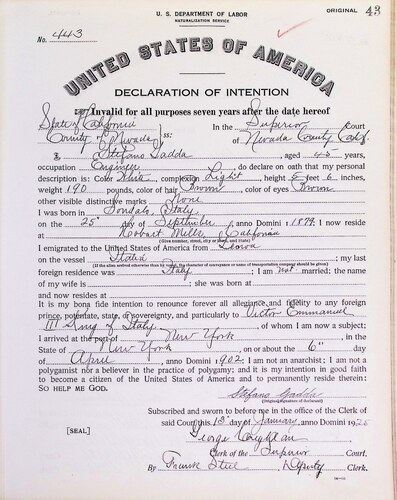 U. S. DEPARTMENT OF LABOR
NATURALIZATION SERVICE
ORIGINAL 43
No. 443
UNITED STATES OF AMERICA
DECLARATION OF INTENTION
Invalid for all purposes seven years after the date hereof
State of California
County of Nevada ss: In the Superior Court of Nevada County Calif.
I, Stefano Gadda, aged 45 years,
occupation Engineer, do declare on oath that my personal
description is: Color White, complexion Light, height 5 feet 6 inches,
weight 190 pounds, color of hair Brown, color of eyes Brown
other visible distinctive marks None
I was born in Sondalo, Italy,
on the 25" day of September, anno Domini 1879; I now reside
at Hobart Mills, California
(Give number, street, city or town, and State.)
I emigrated to the United States of America from Genoa
on the vessel; my last
(If the alien arrived otherwise than by vessel, the character of conveyance or name of transportation company should be given.)
foreign residence was Italy; I am not married; the name
of my wife is; she was born at
and now resides at
It is my bona fide intention to renounce forever all allegiance and fidelity to any foreign
prince, potentate, state, or sovereignty, and particularly to Victor Emmanuel
III King of Italy, of whom I am now a subject;
I arrived at the port of New York, in the
State of New York, on or about the 6" day
of April, anno Domini 1902; I am not an anarchist; I am not a
polygamist nor a believer in the practice of polygamy; and it is my intention in good faith
to become a citizen of the United States of America and to permanently reside therein:
SO HELP ME GOD.
Stefano Gadda
(Original signature of declarant.)
Subscribed and sworn to before me in the office of the Clerk of
said Court this 13" day of January, anno Domini 1925
[SEAL]
George
Clerk of the Superior Court.
By Steel, Deputy Clerk.